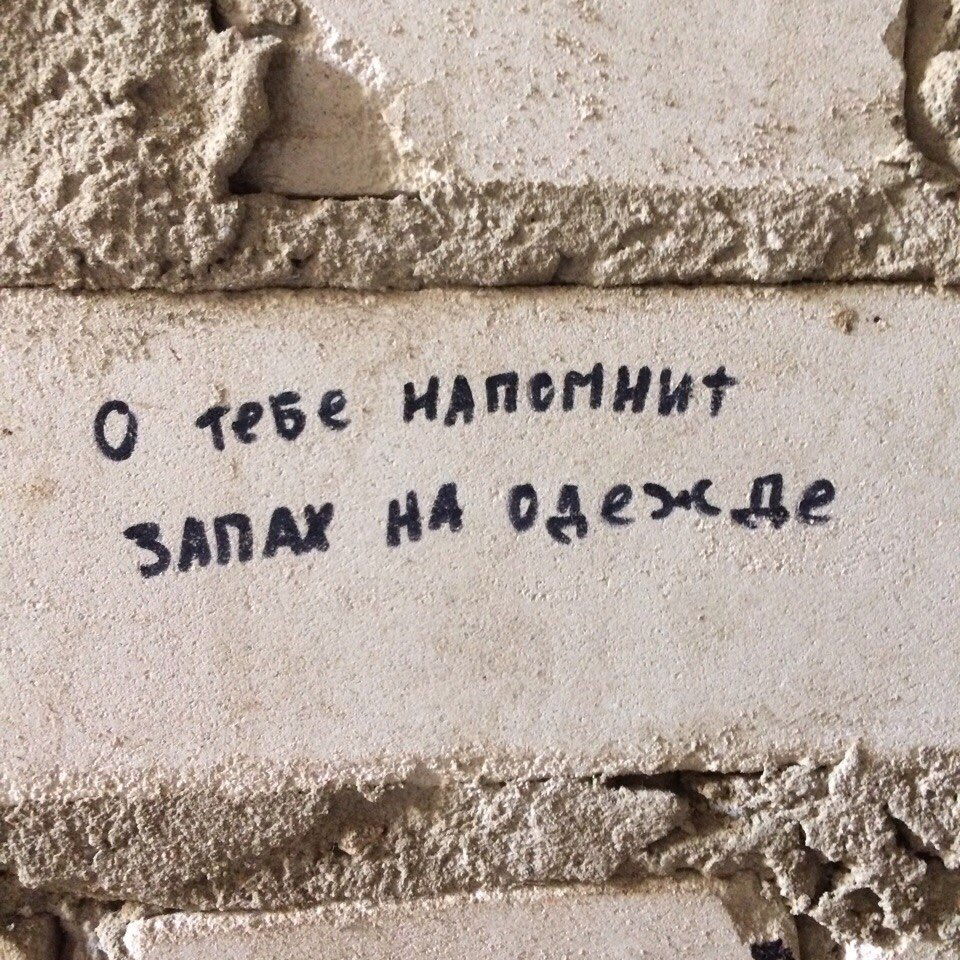 О тебе напомнит
запах на одежде